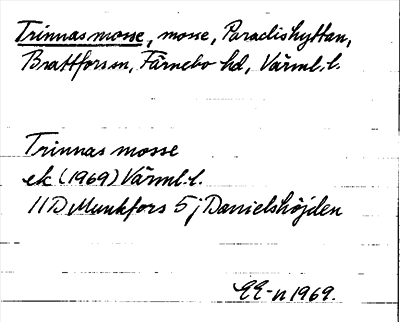 Trinnas mosse, mosse, Paradishyttan,
Brattfors sn, Färnebo hd, Värml. l.
Trinnas mosse
ek (1969) Värml. l.
11D Munkfors 5 j Danielshöjden
EE-n 1969.